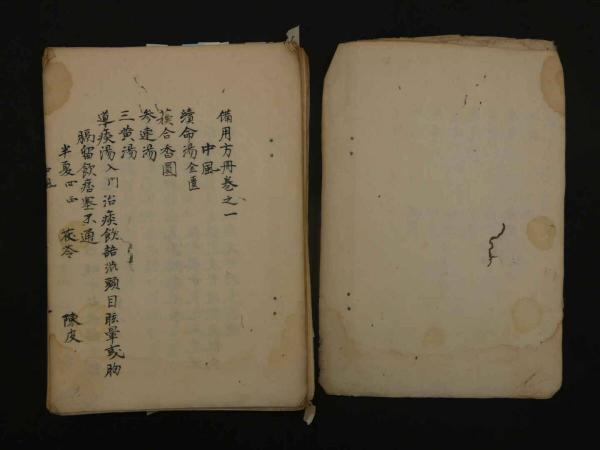 備用方冊卷之一
中風
續命湯 金匱
蘇合香圓
参連湯
三黄湯
導痰湯 入门 治痰飲語澁頭目眩暈或胸
膈留飲痞塞不通
半夏 四匁 茯苓 陳皮